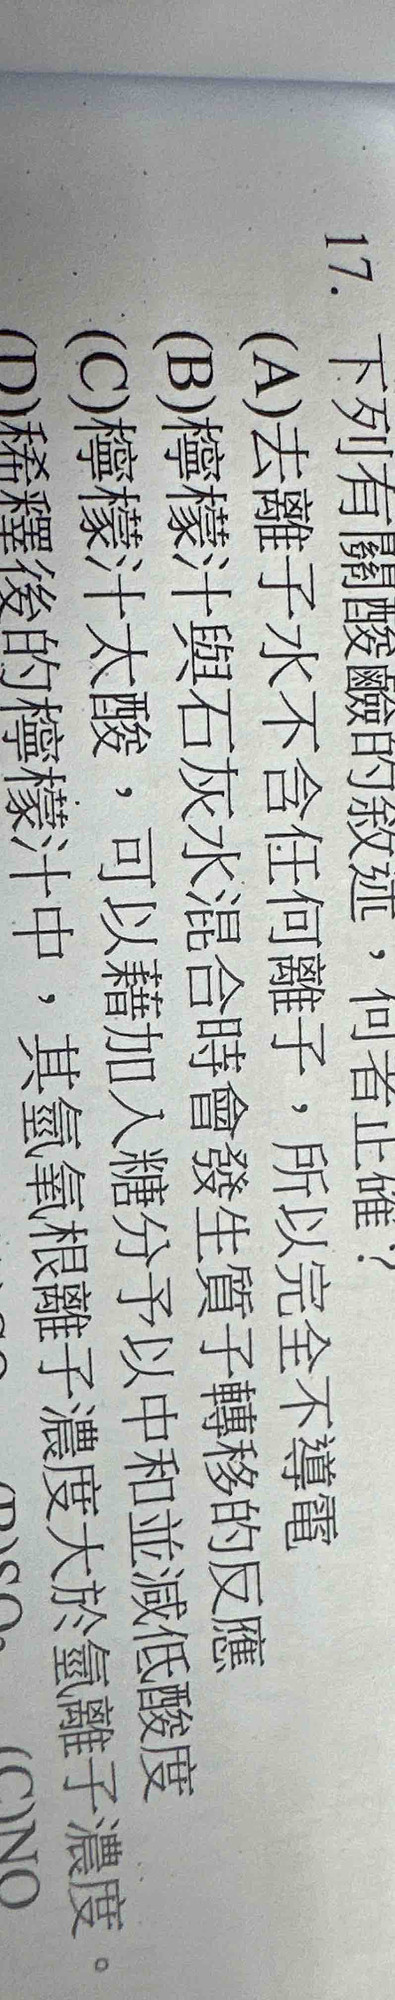 17. 下列有關酸鹼的敘述，何者正確？
(A)去離子水不含任何離子，所以完全不導電
(B)檸檬汁與石灰水混合時會發生質子轉移的反應
(C)檸檬汁太酸，可以藉加入糖分予以中和並減低酸度
(D)稀釋後的檸檬汁中，其氫氧根離子濃度大於氫離子濃度。
(C)NO